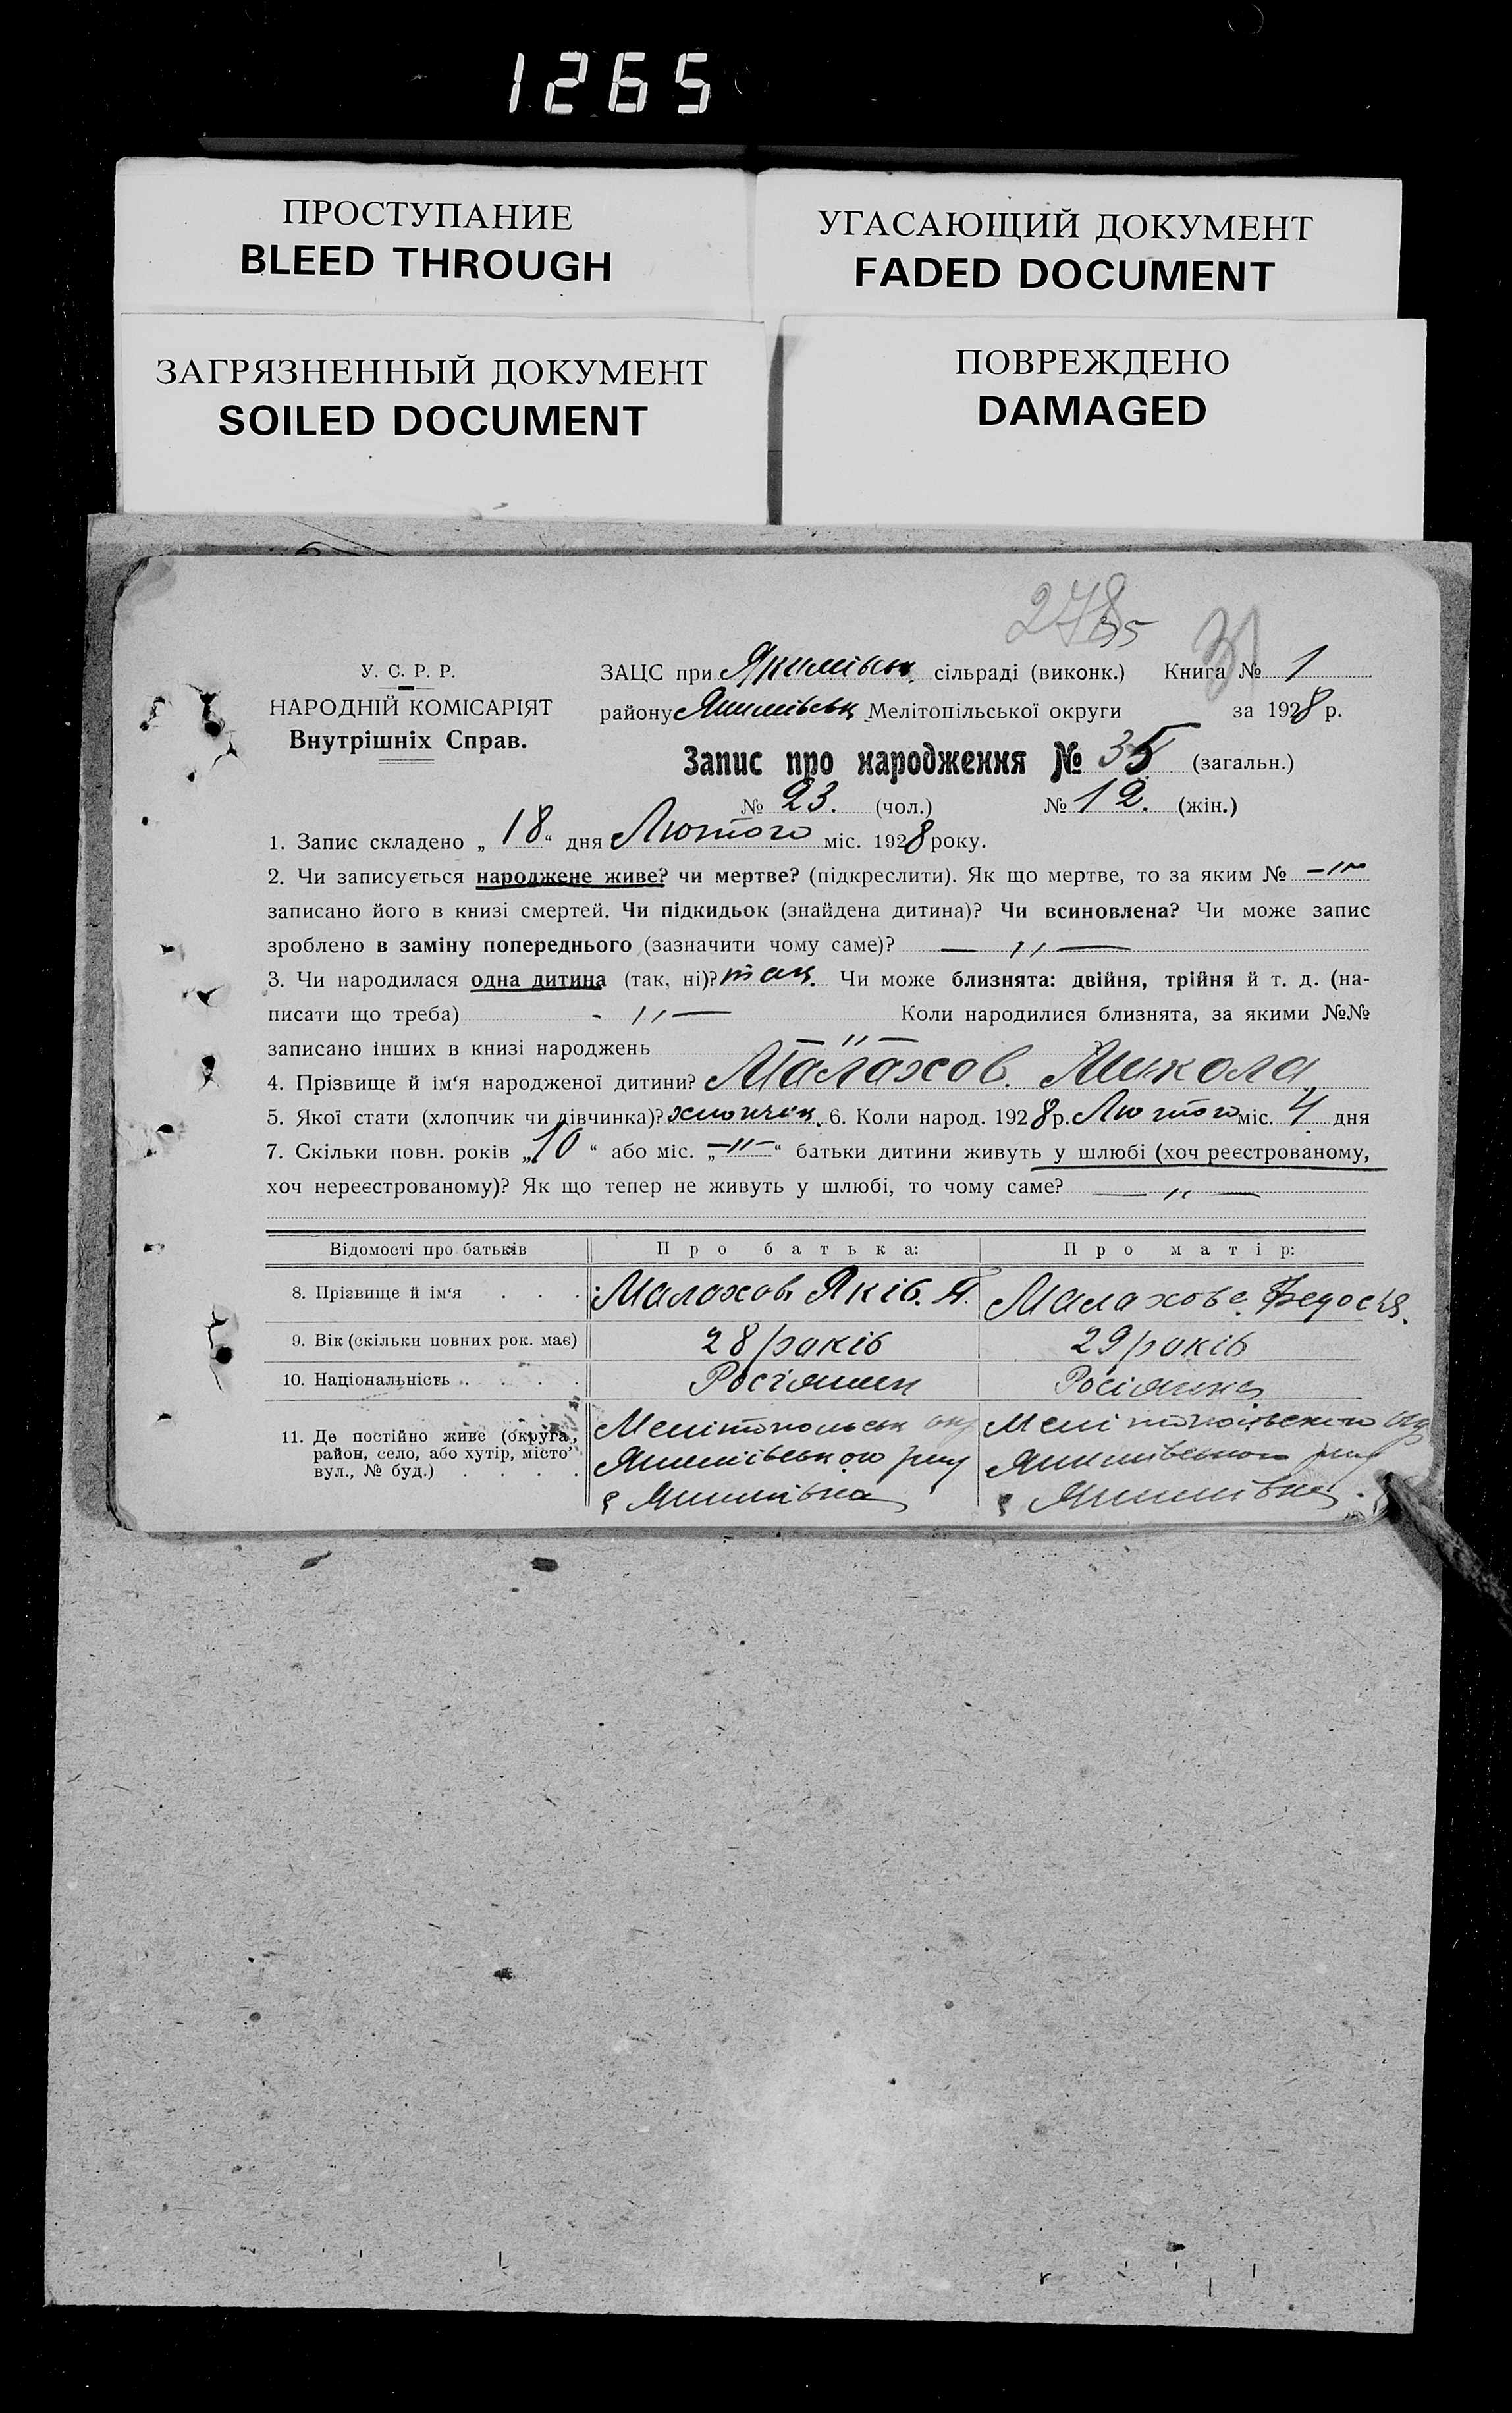 1265
ПРОСТУПАНИЕ
BLEED THROUGH
УГАСАЮЩИЙ ДОКУМЕНТ
FADED DOCUMENT
ЗАГРЯЗНЕННЫЙ ДОКУМЕНТ
SOILED DOCUMENT
ПОВРЕЖДЕНО
DAMAGED
278
35
31
У. С. Р. Р.
НАРОДНІЙ КОМІСАРІЯТ
Внутрішніх Справ.
ЗАЦС при Якимівськ. сільраді (виконк.) Книга № 1
району Якимівськ Мелітопільської округи за 1928 р.
Запис про народження № 35 (загальн.)
№ 23. (чол.) № 12. (жін.)
1. Запис складено „ 18 “ дня Лютого міс. 1928 року.
2. Чи записується народжене живе? чи мертве? (підкреслити). Як що мертве, то за яким № —〃—
записано його в книзі смертей. Чи підкидьок (знайдена дитина)? Чи всиновлена? Чи може запис
зроблено в заміну попереднього (зазначити чому саме)? —〃—
3. Чи народилася одна дитина (так, ні)? так. Чи може близнята: двійня, трійня й т. д. (на-
писати що треба) -〃— Коли народилися близнята, за якими №№
записано інших в книзі народжень —〃—
4. Прізвище й ім‘я народженої дитини? Малахов. Микола
5. Якої стати (хлопчик чи дівчинка)? хлопчик. 6. Коли народ. 1928 р. Лютого міс. 4 дня
7. Скільки повн. років „10“ або міс. „—〃—“ батьки дитини живуть у шлюбі (хоч реєстрованому,
хоч нереєстрованому)? Як що тепер не живуть у шлюбі, то чому саме? —〃—
Відомості про батьків Про батька: Про матір:
8. Прізвище й ім‘я . . . Малахов Яків. Малахова Федосія.
9. Вік (скільки повних рок. має) 28 років 29 років
10. Національність . . . . Росіянин Росіянка
11. Де постійно живе (округа, район, село, або хутір, місто вул., № буд.) . . . .
Мелітопольськ окр
Якимівського рну
с Якимівка
Мелітопольського окр
Якимівського рну
с Якимівка.